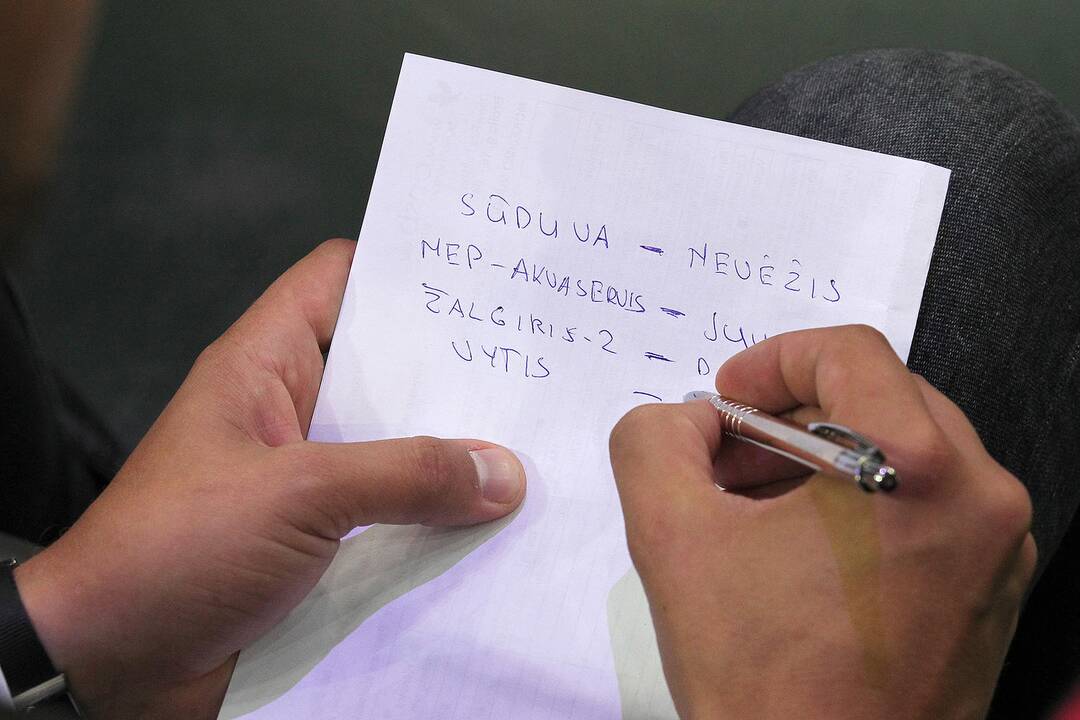 SŪDUVA - NEVĖŽIS
MEP-AKVASERVIS -
ŽALGIRIS-2 - D
VYTIS -